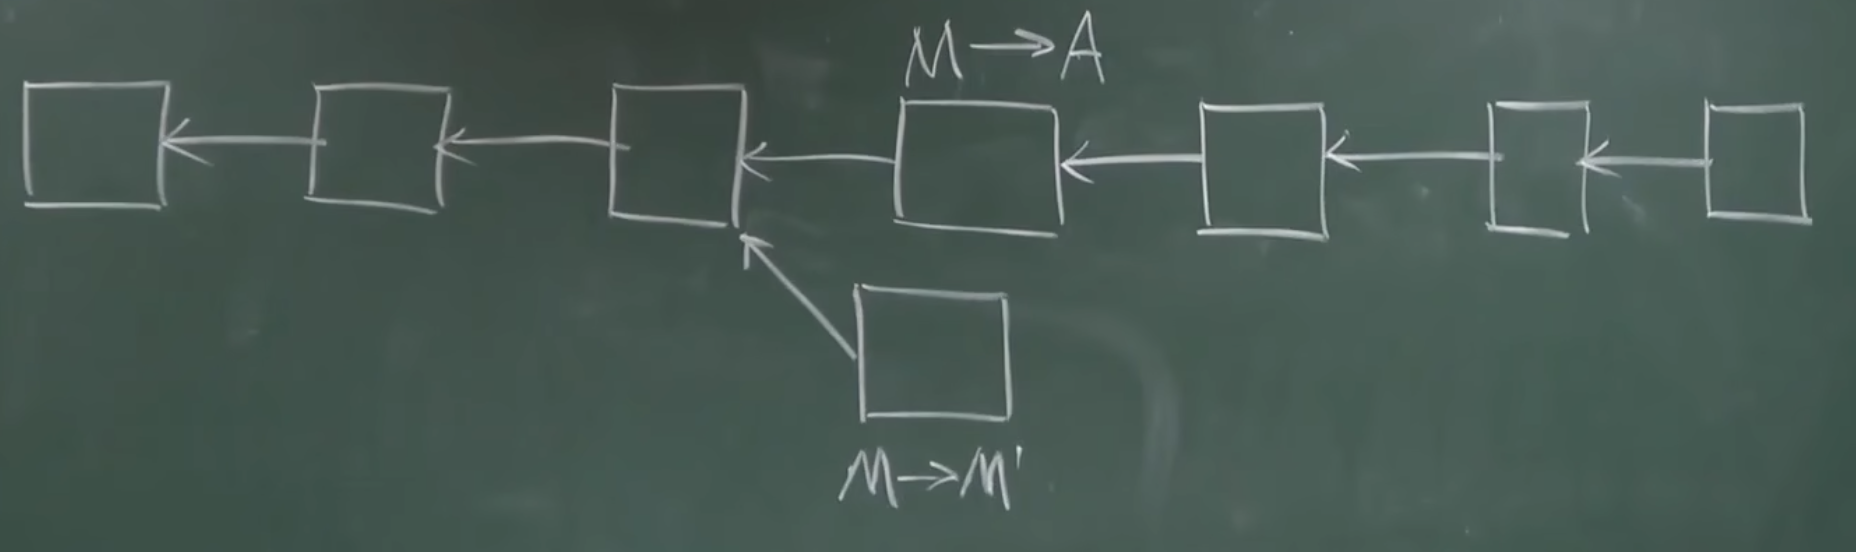 M→A
M→M'